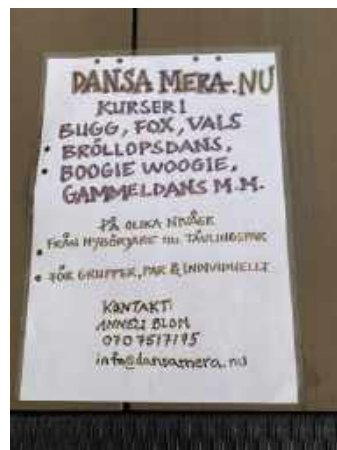 DANSA MERA.NU
KURSER I
BUGG, FOX, VALS
• BRÖLLOPSDANS,
• BOOGIE WOOGIE,
GAMMELDANS M.M.
PÅ OLIKA NIVÅER
• FRÅN NYBÖRJARE TILL TÄVLINGSPAR
• FÖR GRUPPER, PAR & INDIVIDUELLT
KONTAKT:
ANNELI BLOM
070 7517175
info@dansamera.nu